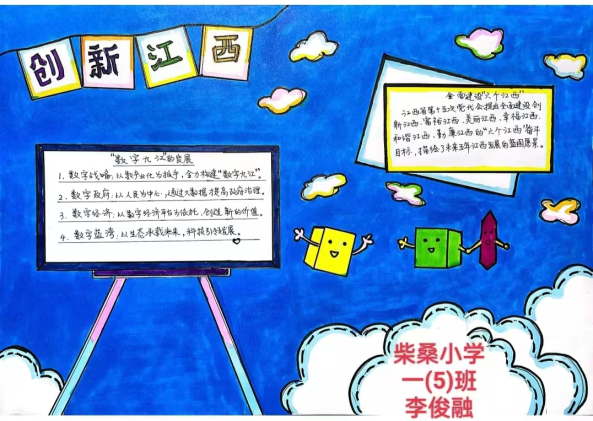 创新江西
"数字九江"的发展
1、数字战略:以数产业化为推手,全力构建"数字九江"。
2、数字政府:以人民为中心,通过大数据提高政府治理。
3、数字经济:以数字经济平台为依托,创造新的价值。
4、数字蓝湾:以生态承载未来,科技引领发展。
全面建设"六个江西"
江西省第十五次党代会提出全面建设创
新江西、富裕江西、美丽江西、幸福江西、
和谐江西、勤廉江西的"六个江西"奋斗
目标,描绘了未来5年江西发展的蓝图愿景。
柴桑小学
一(5)班
李俊融